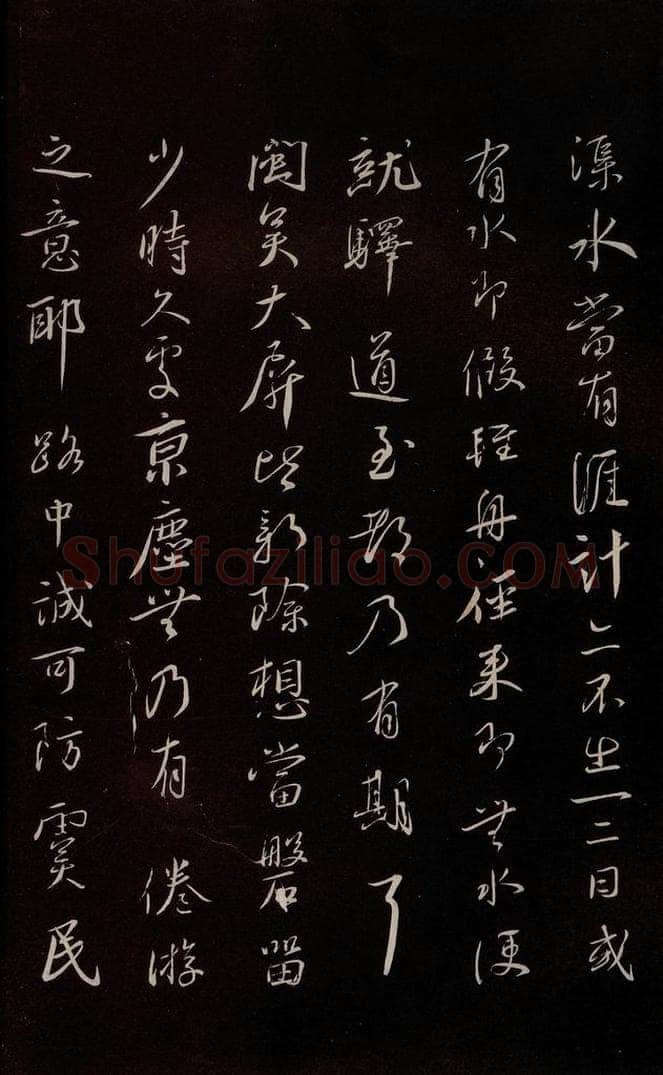 渠水當有涯計亡不出一二日或
有水即假輕舟徑來即無水便
就驛 道至都乃有期了
閩矣大屏比新除想當盤留
少時久更京塵無乃有 倦游
之意耶 路中誠可防 民
Shufaziliao.COM